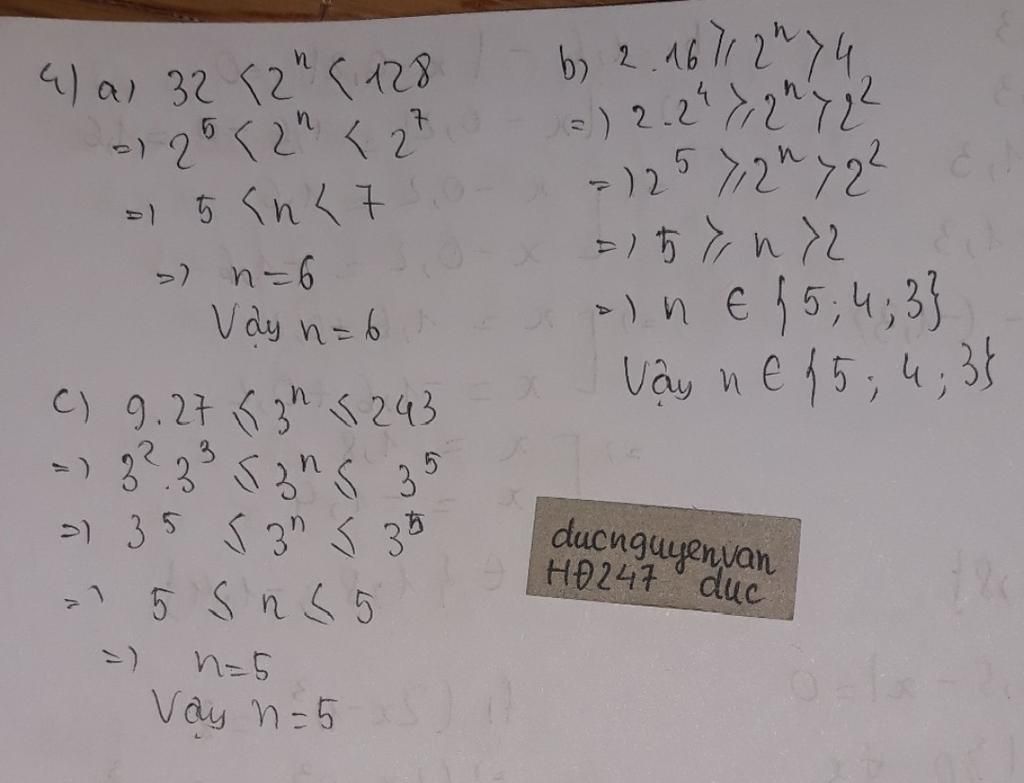 4) a) 32 < 2^n < 128
=) 2^5 < 2^n < 2^7
=) 5 < n < 7
=) n = 6
Vậy n = 6
b) 2.16 ⩾ 2^n > 4
=) 2.2^4 ⩾ 2^n > 2^2
=) 2^5 ⩾ 2^n > 2^2
=) 5 ⩾ n > 2
=) n ∈ {5; 4; 3}
Vậy n ∈ {5; 4; 3}
c) 9.27 ⩽ 3^n ⩽ 243
=) 3^2.3^3 ⩽ 3^n ⩽ 3^5
=) 3^5 ⩽ 3^n ⩽ 3^5
=) 5 ⩽ n ⩽ 5
=) n = 5
Vậy n = 5
ducnguyenvan
HĐ247 duc